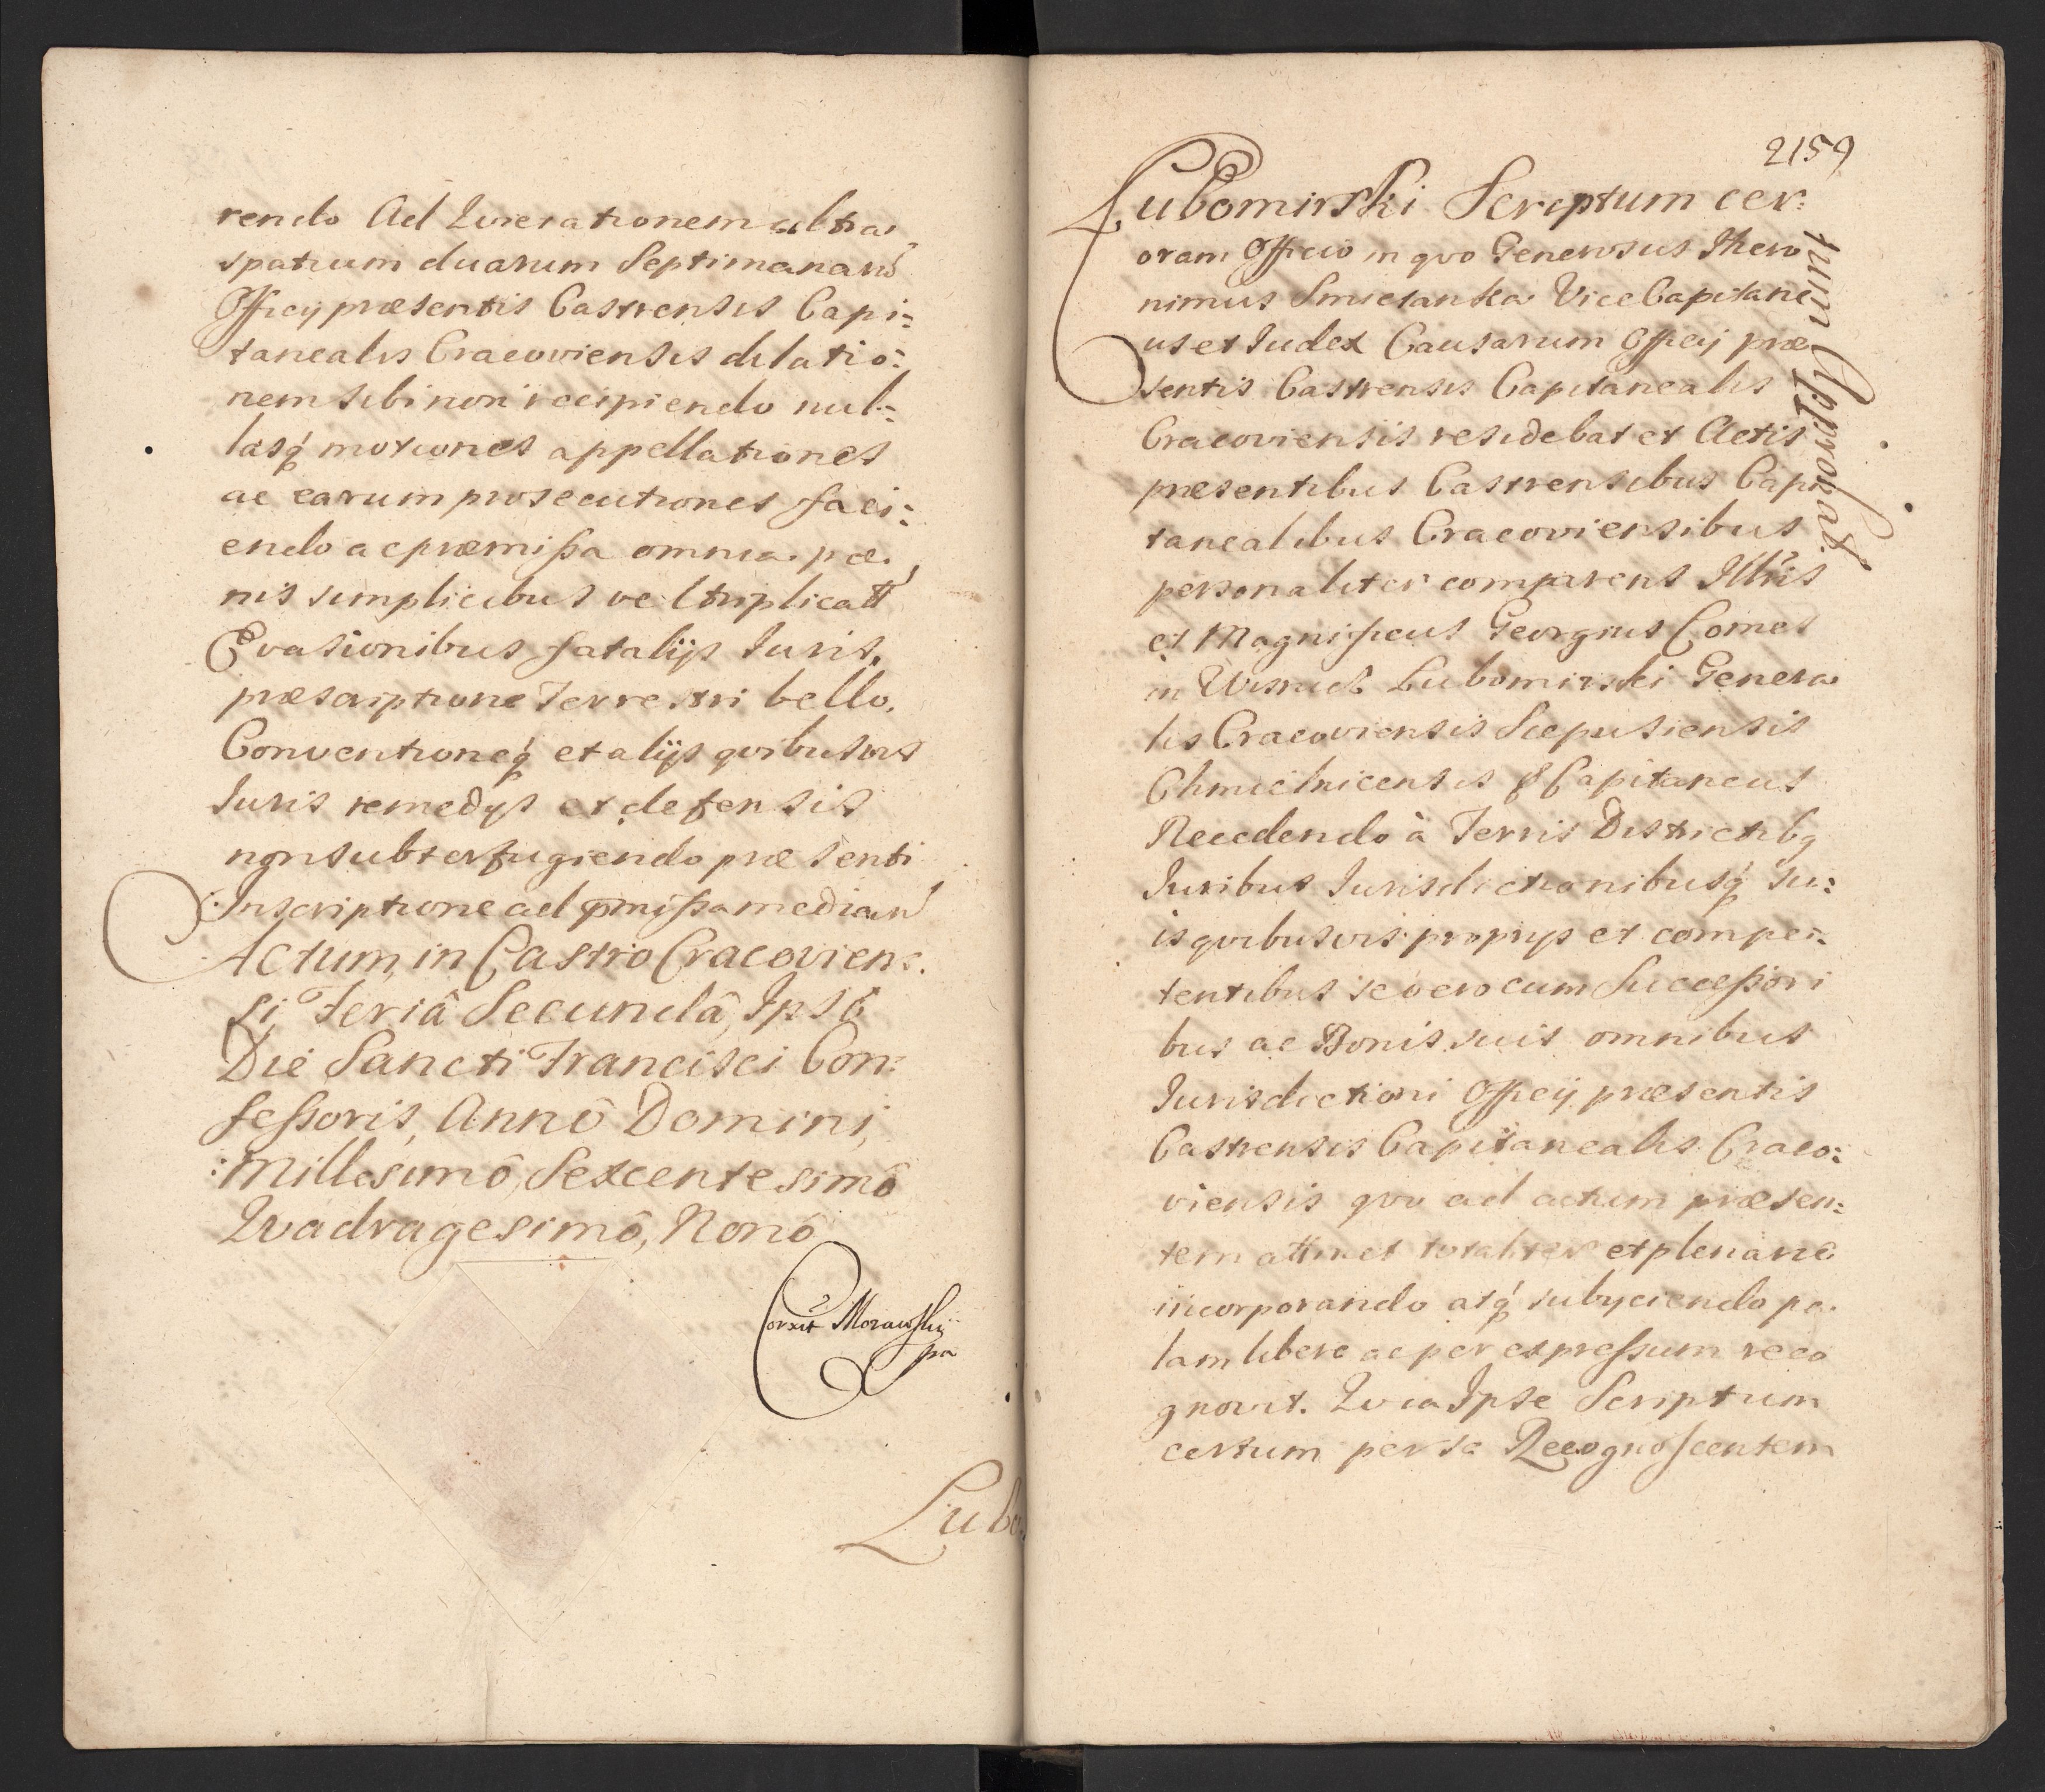 rendo Ad Querationem ultra
spatium duarum Septimanarũ
Officij præsentis Castrensis Capi:
tanealis Cracoviensis dilatio:
nem sibi non recipiendo nul:
lasq́ motiones appellationes
ac earum prosecutiones faci:
endo ac præmißa omnia pæ
nis simplicibus vel triplicatt
Evasionibus fatalijs Iuris,
præscriptione Terrestri bello,
Conventioneq́ et alijs qvibusvis
Iuris remedijs et defensis
non subterfugiendo præsenti
Inscriptione ad pmißa median
Actum, in Castro Cracovien:
si, Feriâ Secundâ, Ipsô
Die Sancti Francisci Con:
feßoris, Annô Domini,
Millesimô, Sexcentesimô
Qvadragesimô, Nonô
Corxit Morawskij
pa
Lubo
2159
Lubomirski Scriptum cer:
tum Approbat.
oram Officio in qvo Generosus Ihero
nimus Smietanka ViceCapitane
us et Iudex Causarum Officij præ
sentis Castrensis Capitanealis
Cracoviensis residebat et Actis
præsentibus Castrensibus Capi
tanealibus Cracoviensibus
personaliter comparens Illris
et Magnificus Georgius Comes
in Wisnicz Lubomirski Genera
lis Cracoviensis Scepusiensis
Chmielnicensis & Capitaneus
Recedendo à Terris Districtibq
Iuribus Iurisdictionibusq́ su:
is qvibusvis proprijs et compe:
tentibus se vero cum Succeßori
bus ac Bonis suis omnibus
Iurisdictioni Officij præsentis
Castrensis Capitanealis Craco:
viensis qvo ad actum præsen:
tem attinet totaliter et plenarie
incorporando atq́ subijciendo pa
lam libere ac per expreßum reco
gnovit. Qvia Ipse Scriptum
certum per se Recognoscentem